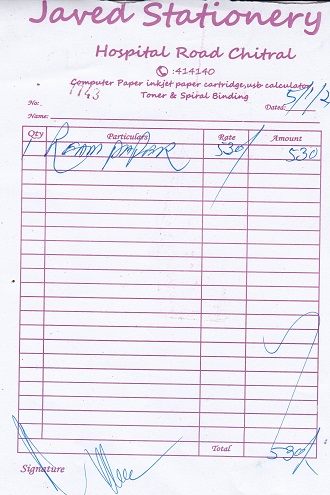 Javed Stationery
Hospital Road Chitral
:414140
Computer Paper inkjet paper cartridge,usb calculator
Toner & Spiral Binding
No: 1143 Dated: 5/1/2
Name:
Qty Particulars Rate Amount
1 Ream Paper 530/ 530
Total 530/
Signature